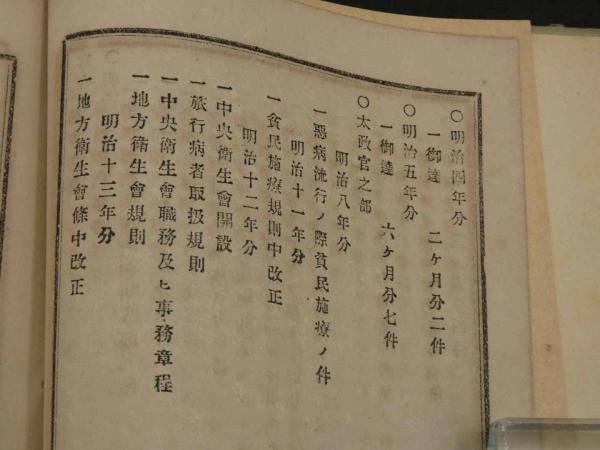 〇明治四年分
一御達　二ケ月分二件
〇明治五年分
一御達　六ケ月分七件
〇太政官之部
明治八年分
一惡病流行ノ際貧民施療ノ件
明治十一年分
一貧民施療規則中改正
明治十二年分
一中央衞生會開設
一旅行病者取扱規則
一中央衞生會職務及ヒ事務章程
一地方衞生會規則
明治十三年分
一地方衞生會條中改正